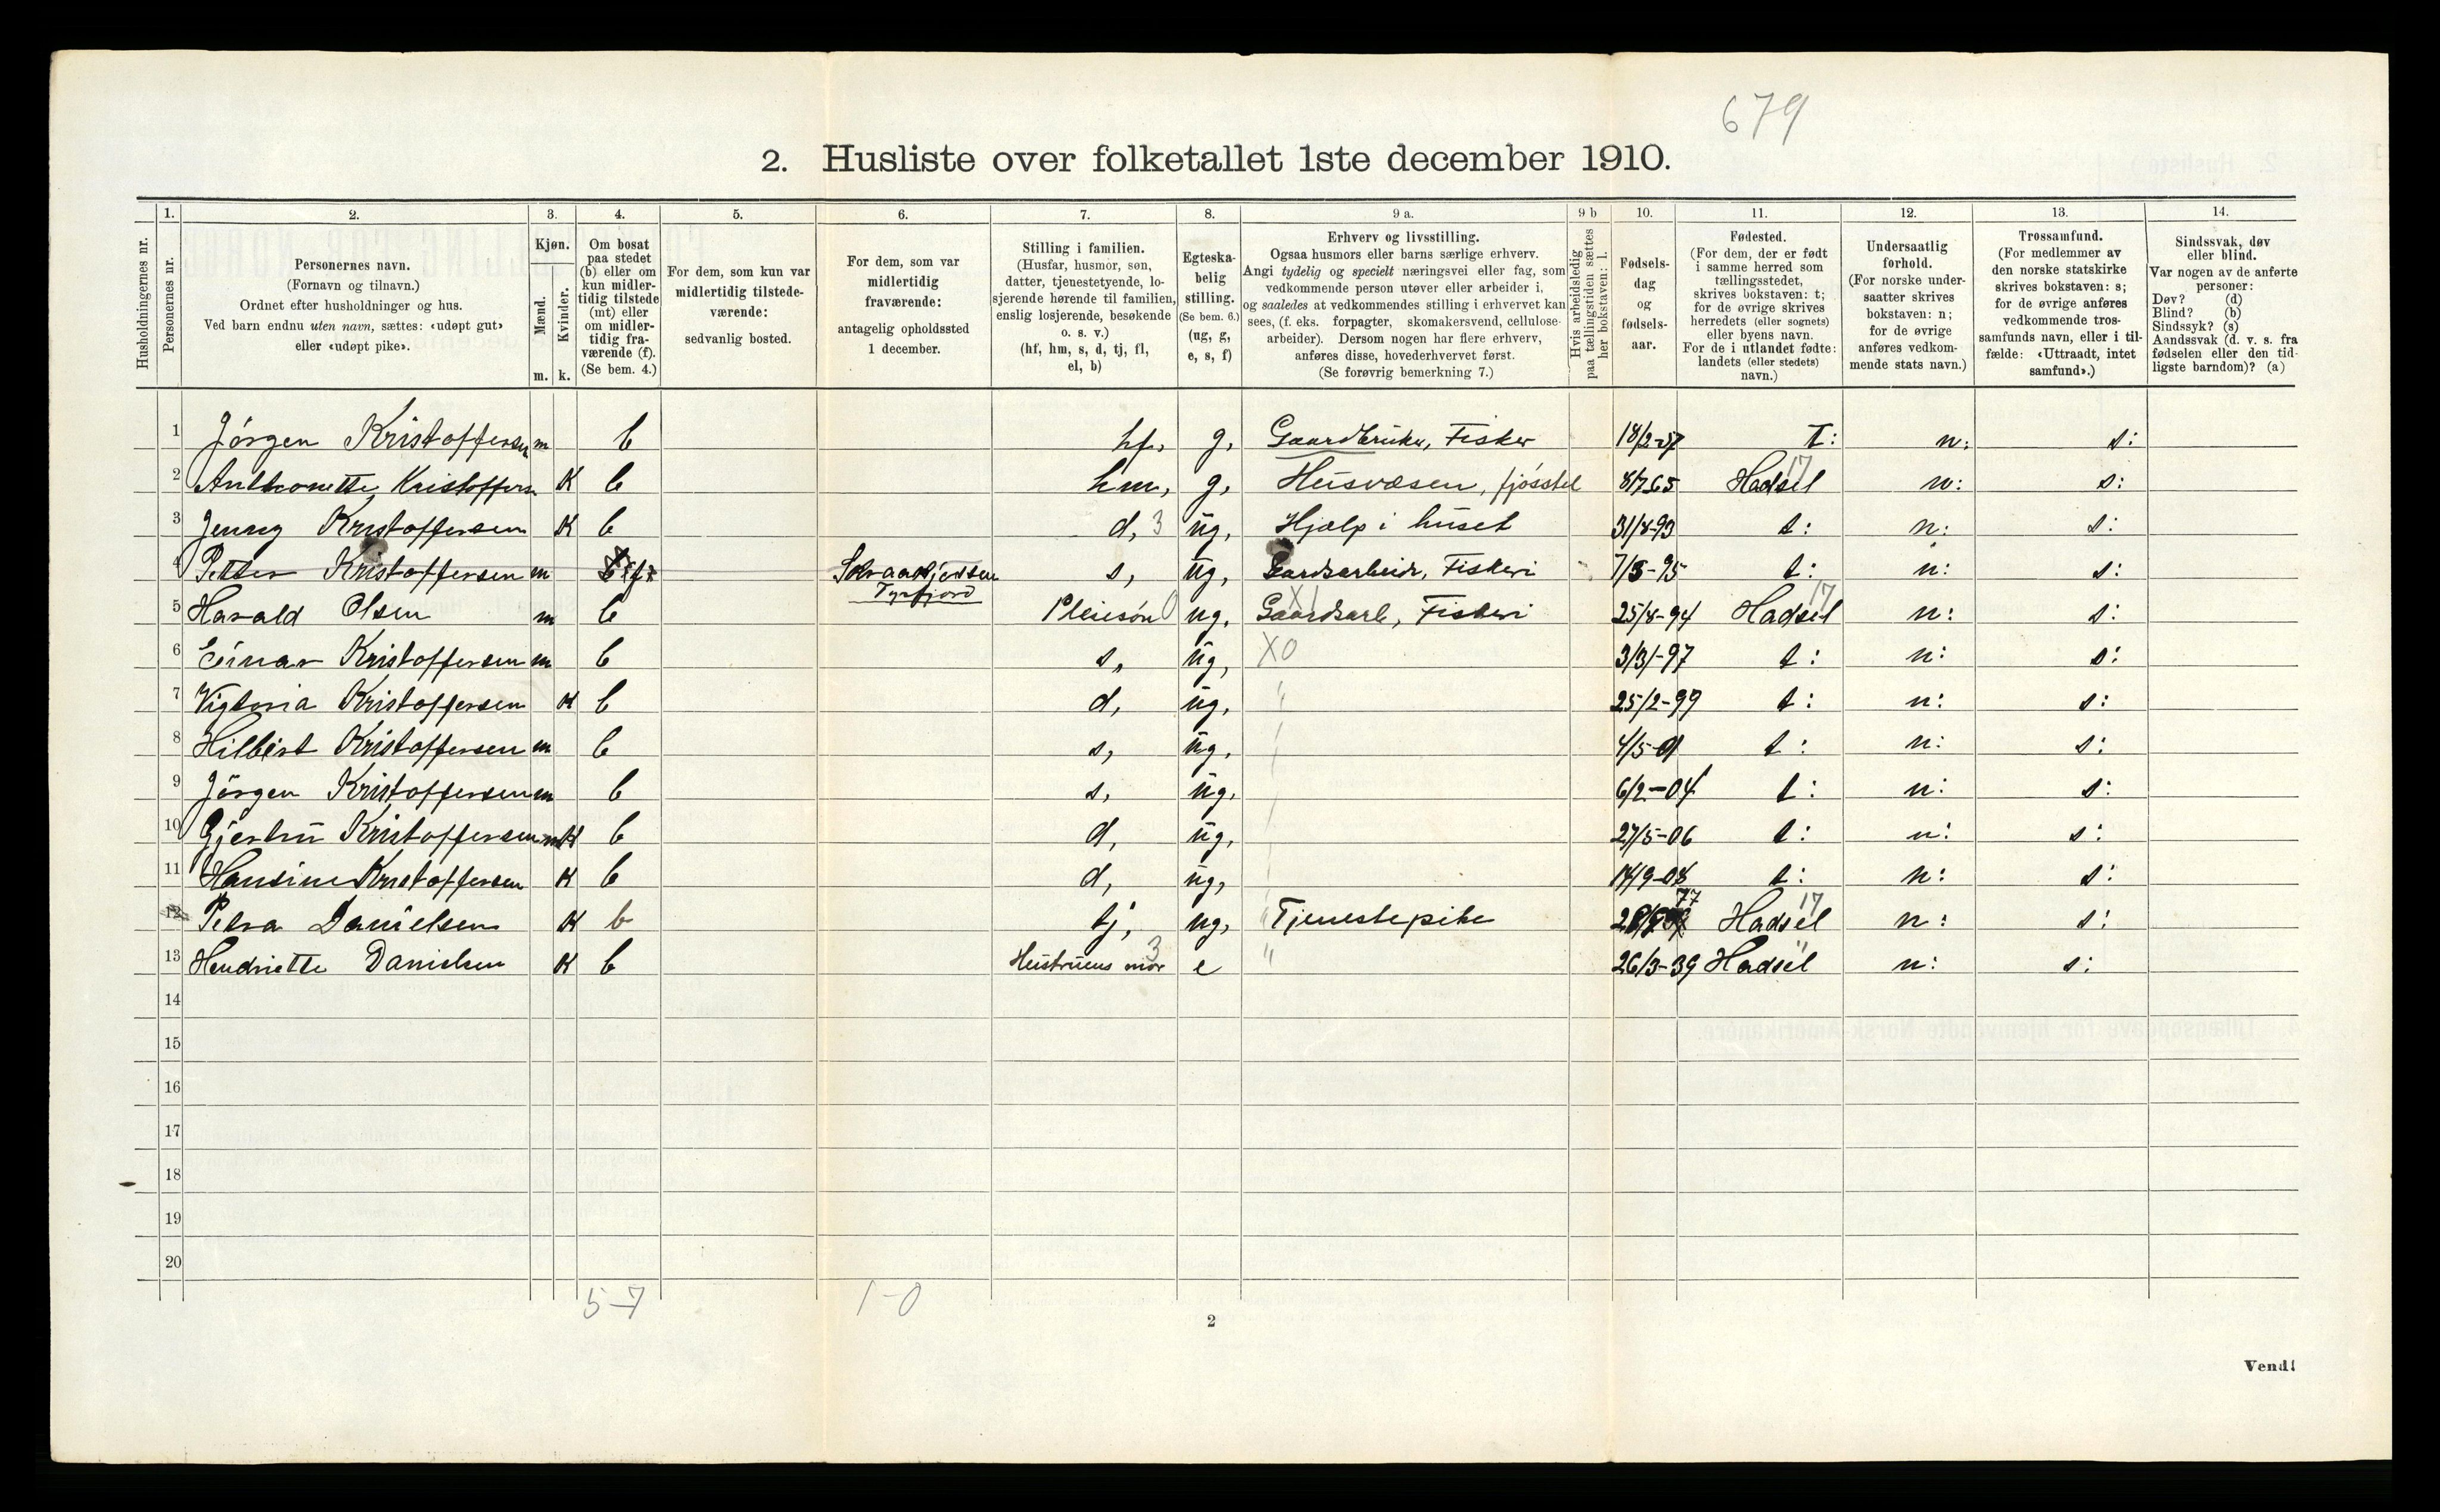 679
2. Husliste over folketallet 1ste december 1910.
Husholdningernes nr.
1.
Personernes nr.
2.
Personernes navn.
(Fornavn og tilnavn.)
Ordnet efter husholdninger og hus.
Ved barn endnu uten navn, sættes: «udøpt gut»
eller «udøpt pike».
3.
Kjøn.
Mænd.
Kvinder.
m. k.
4.
Om bosat
paa stedet
(b) eller om
kun midler-
tidig tilstede
(mt) eller
om midler-
tidig fra-
værende (f).
(Se bem. 4.)
5.
For dem, som kun var
midlertidig tilstede-
værende:
sedvanlig bosted.
6.
For dem, som var
midlertidig
fraværende:
antagelig opholdssted
1 december.
7.
Stilling i familien.
(Husfar, husmor, søn,
datter, tjenestetyende, lo-
sjerende hørende til familien,
enslig losjerende, besøkende
o. s. v.)
(hf, hm, s, d, tj, fl,
el, b)
8.
Egteska-
belig
stilling.
(Se bem. 6.)
(ug, g,
e, s, f)
9 a.
Erhverv og livsstilling.
Ogsaa husmors eller barns særlige erhverv.
Angi tydelig og specielt næringsvei eller fag, som
vedkommende person utøver eller arbeider i,
og saaledes at vedkommendes stilling i erhvervet kan
sees, (f. eks. forpagter, skomakersvend, cellulose-
arbeider). Dersom nogen har flere erhverv,
anføres disse, hovederhvervet først.
(Se forøvrig bemerkning 7.)
9 b
Hvis arbeidsledig
paa tællingstiden sættes
her bokstaven: l.
10.
Fødsels-
dag
og
fødsels-
aar.
11.
Fødested.
(For dem, der er født
i samme herred som
tællingsstedet,
skrives bokstaven: t;
for de øvrige skrives
herredets (eller sognets)
eller byens navn.
For de i utlandet fødte:
landets (eller stedets)
navn.)
12.
Undersaatlig
forhold.
(For norske under-
saatter skrives
bokstaven: n;
for de øvrige
anføres vedkom-
mende stats navn.)
13.
Trossamfund.
(For medlemmer av
den norske statskirke
skrives bokstaven: s;
for de øvrige anføres
vedkommende tros-
samfunds navn, eller i til-
fælde: «Uttraadt, intet
samfund».)
14.
Sindssvak, døv
eller blind.
Var nogen av de anførte
personer:
Døv? (d)
Blind? (b)
Sindssyk? (s)
Aandssvak (d. v. s. fra
fødselen eller den tid-
ligste barndom)? (a)
1 Jörgen Kristoffersen m b hf, g, Gaardbruker, Fisker 18/2-57 T: n: s:
2 Kristoffersen K b hm, g, Husvæsen, fjösstel 8/7 65 Hadsel 17 n: s:
3 Jenny Kristoffersen K b d, 3 ug, Hjælp i huset 31/8-93 t: n: s:
4 Petter Kristoffersen m f s, ug, Gardsarbeide, Fiskeri t: n: s:
5 Harald Olsen m b Pleiesön 0 ug, Gaardsarb, Fiskeri 25/8-94 Hadsel 17 n: s:
6 Einar Kristoffersen m b s, ug, X0 3/3-97 t: n: s:
7 Vigtoria Kristoffersen K b d, ug, " 25/2-99 t: n: s:
8 Hilbert Kristoffersen m b s, ug, 4/5-01 t: n: s:
9 Jörgen Kristoffersen m b s, ug, 6/2-04 t: n: s:
10 Gjertru Kristoffersen K b d, ug, 27/5-06 t: n: s:
11 Hansine Kristoffersen K b d, ug, 14/9-08 t: n: s:
12 Petra Danielsen K b tj, ug, Tjenestepike 77 Hadsel 17 n: s:
13 Hendriette Danielsen K b Hustruens mor 3 e " 26/3-39 Hadsel " n: s:
14
15
16
17
18
19
20
5-7 1-0
2
Vend!